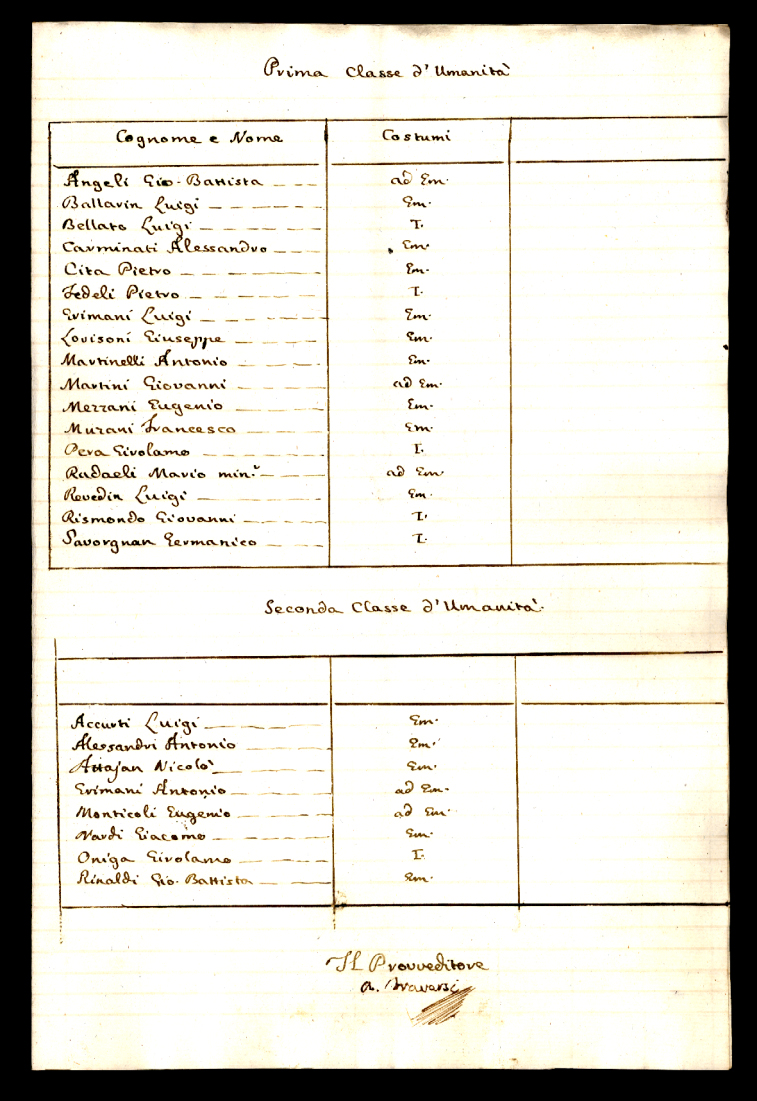 Prima Classe d'Umanità
Cognome e Nome Costumi
Angeli Gio. Battista ad Em.
Ballarin Luigi Em.
Bellato Luigi I.
Carminati Alessandro Em.
Cita Pietro Em.
Fedeli Pietro I.
Grimani Luigi Em.
Lovisoni Giuseppe Em.
Martinelli Antonio Em.
Martini Giovanni ad Em.
Mezzani Eugenio Em.
Murani Francesco Em.
Pera Girolamo I.
Radaeli Mario min.r ad Em.
Revedin Luigi Em.
Rismondo Giovanni I.
Savorgnan Germanico I.
Seconda Classe d'Umanità.
Accurti Luigi Em.
Alessandri Antonio Em.
Attajan Nicolò Em.
Grimani Antonio ad Em.
Monticoli Eugenio ad Em.
Nardi Giacomo Em.
Oniga Girolamo I.
Rinaldi Gio. Battista Em.
Il Provveditore
A. Traversi